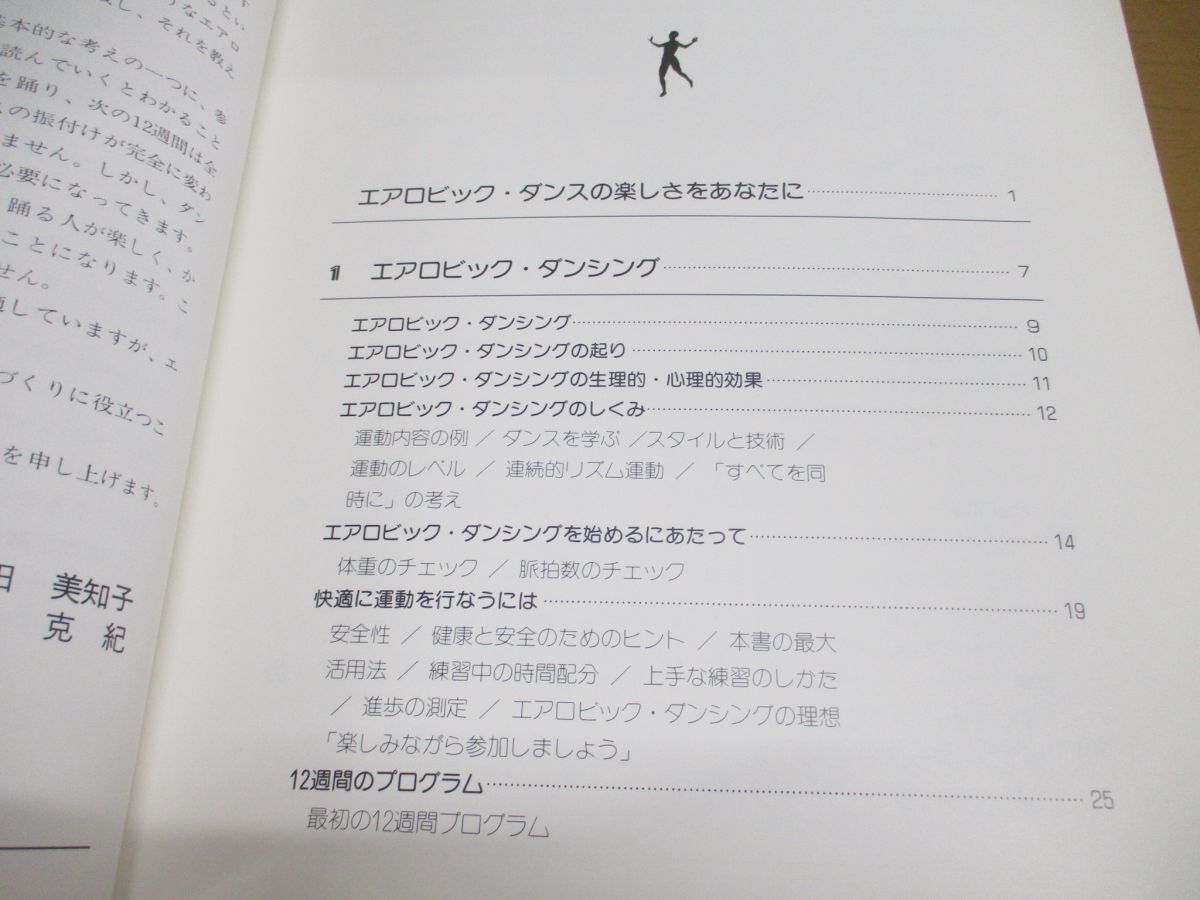 し、それを教え
基本的な考えの一つに、参
読んでいくとわかること
を踊り、次の12週間は全
の振付けが完全に変わ
ません。しかし、ダン
必要になってきます。
踊る人が楽しく、か
ことになります。こ
せん。
していますが、エ
づくりに役立つこ
を申し上げます。
田 美知子
克 紀
エアロビック・ダンスの楽しさをあなたに 1
1 エアロビック・ダンシング 7
エアロビック・ダンシング 9
エアロビック・ダンシングの起り 10
エアロビック・ダンシングの生理的・心理的効果 11
エアロビック・ダンシングのしくみ 12
運動内容の例 / ダンスを学ぶ /スタイルと技術 /
運動のレベル / 連続的リズム運動 / 「すべてを同
時に」の考え
エアロビック・ダンシングを始めるにあたって 14
体重のチェック / 脈拍数のチェック
快適に運動を行なうには 19
安全性 / 健康と安全のためのヒント / 本書の最大
活用法 / 練習中の時間配分 / 上手な練習のしかた
/ 進歩の測定 / エアロビック・ダンシングの理想
「楽しみながら参加しましょう」
12週間のプログラム 25
最初の12週間プログラム